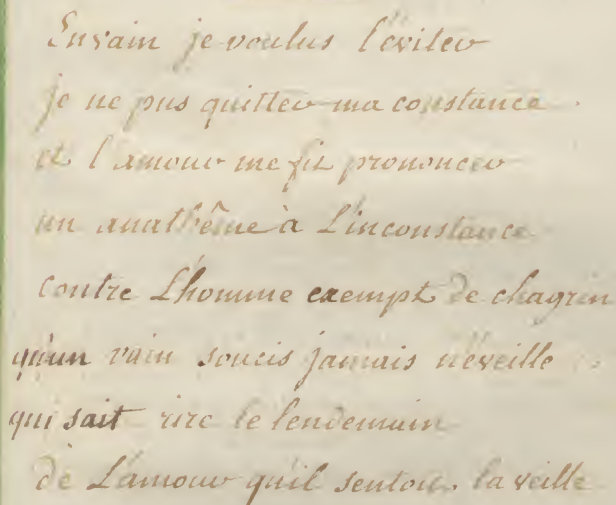 Envain je voulus l'eviter
je ne pus quitter ma constance
et l'amour me fit prononcer
un anathême à L'inconstance
contre L'homme exempt de chagrin
qu'un vain soucis jamais n'eveille
qui sait rire le lendemain
de L'amour qu'il sentoit la veille